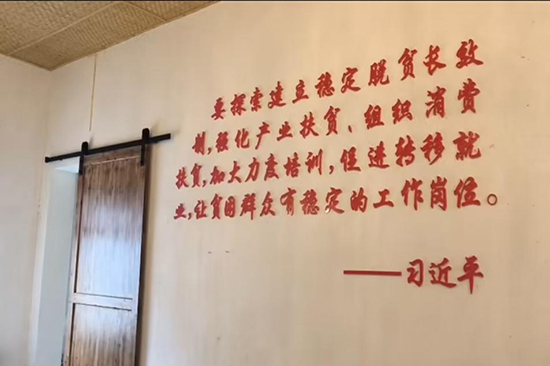 要探索建立稳定脱贫长效
制,强化产业扶贫、组织消费
扶贫,加大力度培训,促进转移就
业,让贫困群众有稳定的工作岗位。
——习近平